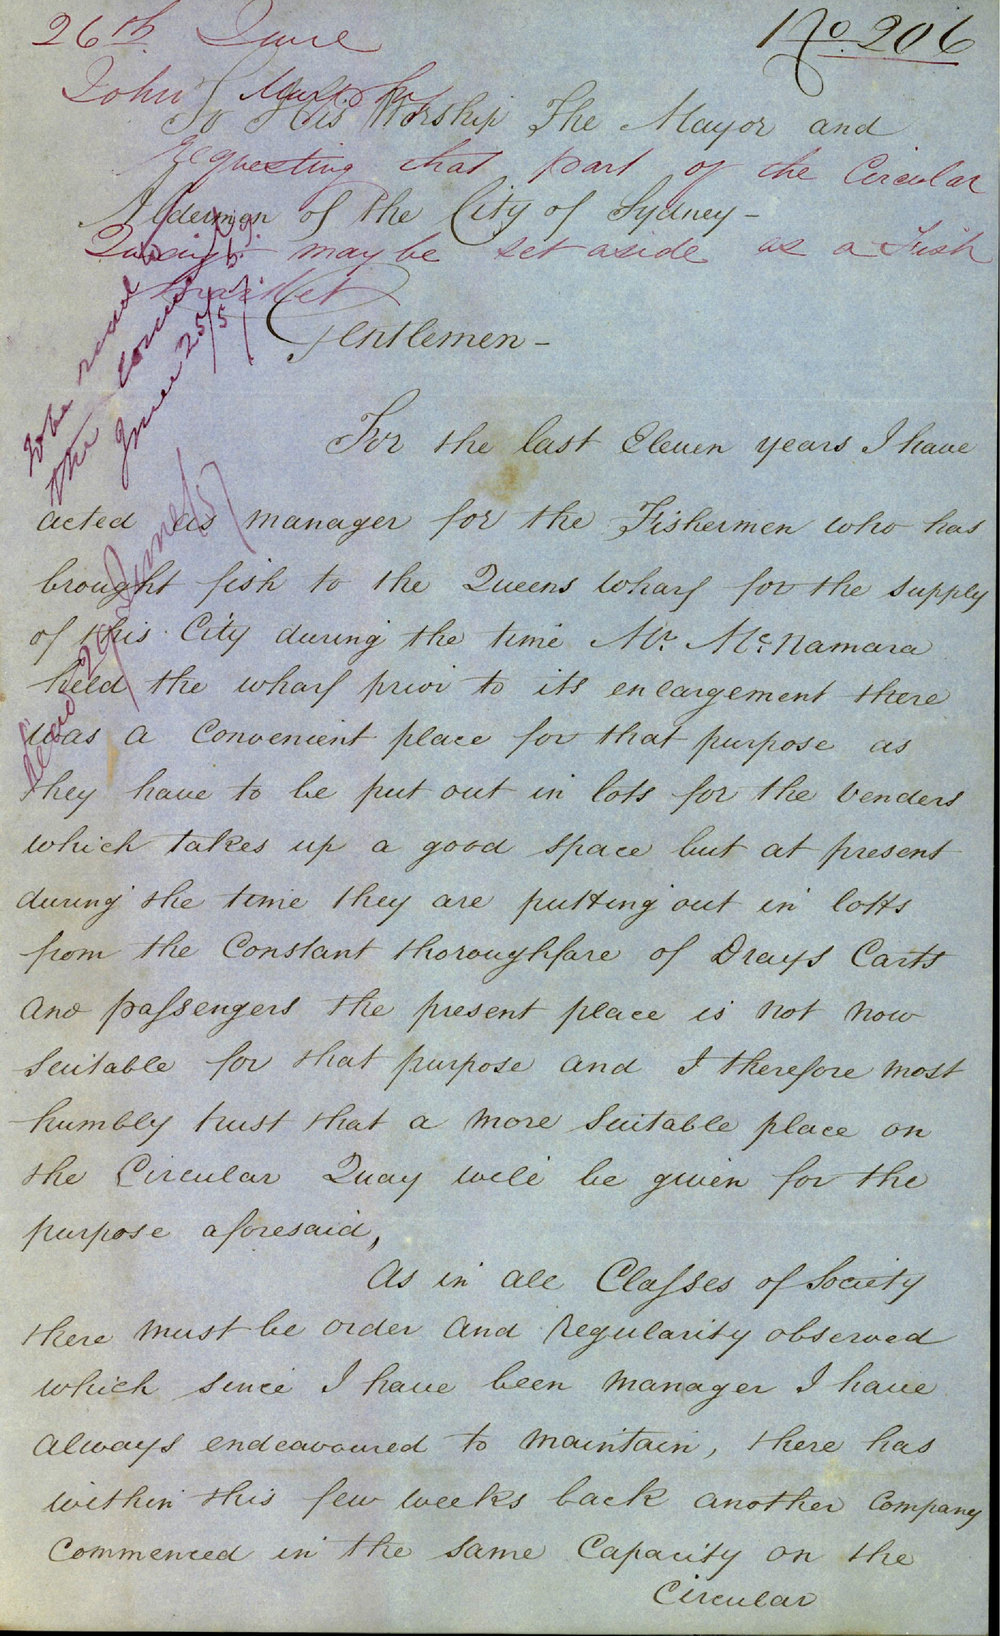 26th June
No. 206
John
To His Worship The Mayor and
requesting that part of the Circular
Aldermen of the City of Sydney -
Quay may be set aside as a Fish
Market
Gentlemen -
To be read
the
June 25/5
For the last Eleven years I have
acted as manager for the Fishermen who has
brought fish to the Queens Wharf for the supply
of this City during the time Mr. McNamara
held the wharf prior to its enlargement there
was a convenient place for that purpose as
they have to be put out in lots for the venders
which takes up a good space but at present
during the time they are putting out in lotts
from the Constant thoroughfare of Drays Carts
and passengers the present place is not now
suitable for that purpose and I therefore most
humbly trust that a more suitable place on
the Circular Quay will be given for the
purpose aforesaid,
As in all Classes of Society
there must be order and regularity observed
which since I have been manager I have
always endeavoured to maintain, there has
within this few weeks back another Company
Commenced in the same Capacity on the
Circular